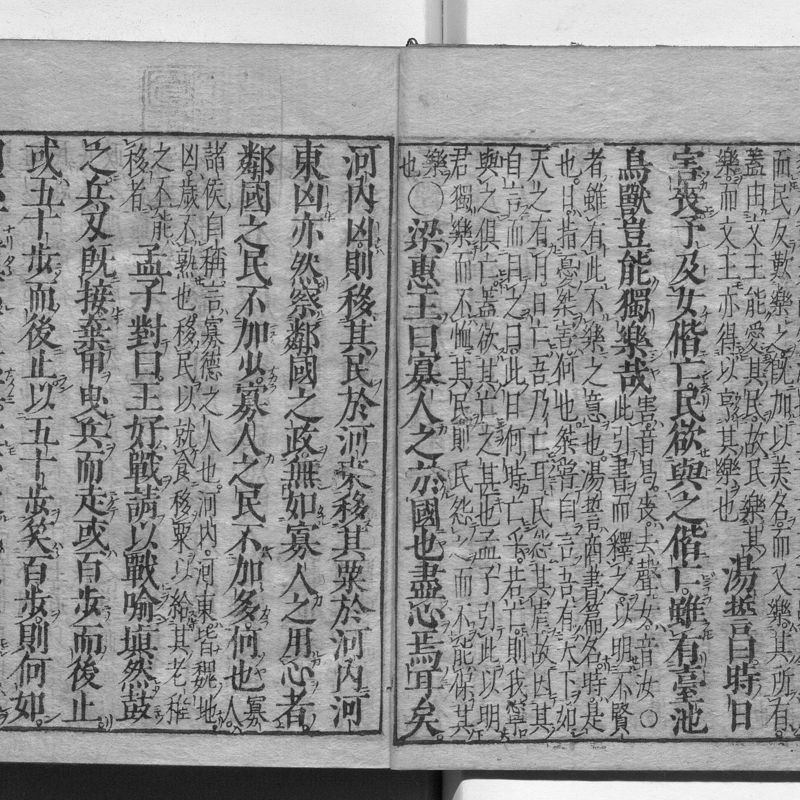 而民反歡樂之既加以美名而又樂其所有
蓋由文王能愛其民故民樂其
樂而文王亦得以享其樂也
湯誓曰時日
害喪予及女偕亡民欲與之偕亡雖有臺池
鳥獸豈能獨樂哉
害音曷喪去聲女音汝○
此引書而釋之以明不賢
者雖有此不樂之意也湯誓商書篇名時是
也日指夏桀害何也桀嘗自言吾有天下如
天之有日日亡吾乃亡耳民怨其虐故因其
自言而目之曰此日何時亡乎若亡則我寧
與之俱亡蓋欲其亡之甚也孟子引此以明
君獨樂而不恤其民則民怨之而不能保其
樂
也
○梁惠王曰寡人之於國也盡心焉耳矣
河內凶則移其民於河東移其粟於河內河
東凶亦然察鄰國之政無如寡人之用心者
鄰國之民不加少寡人之民不加多何也
寡
人
諸侯自稱言寡德之人也河內河東皆魏地
凶歲不熟也移民以就食移粟以給其老稚
之不能
移者
孟子對曰王好戰請以戰喻填然鼓
之兵刃既接棄甲曳兵而走或百步而後止
或五十步而後止以五十步笑百步則何如